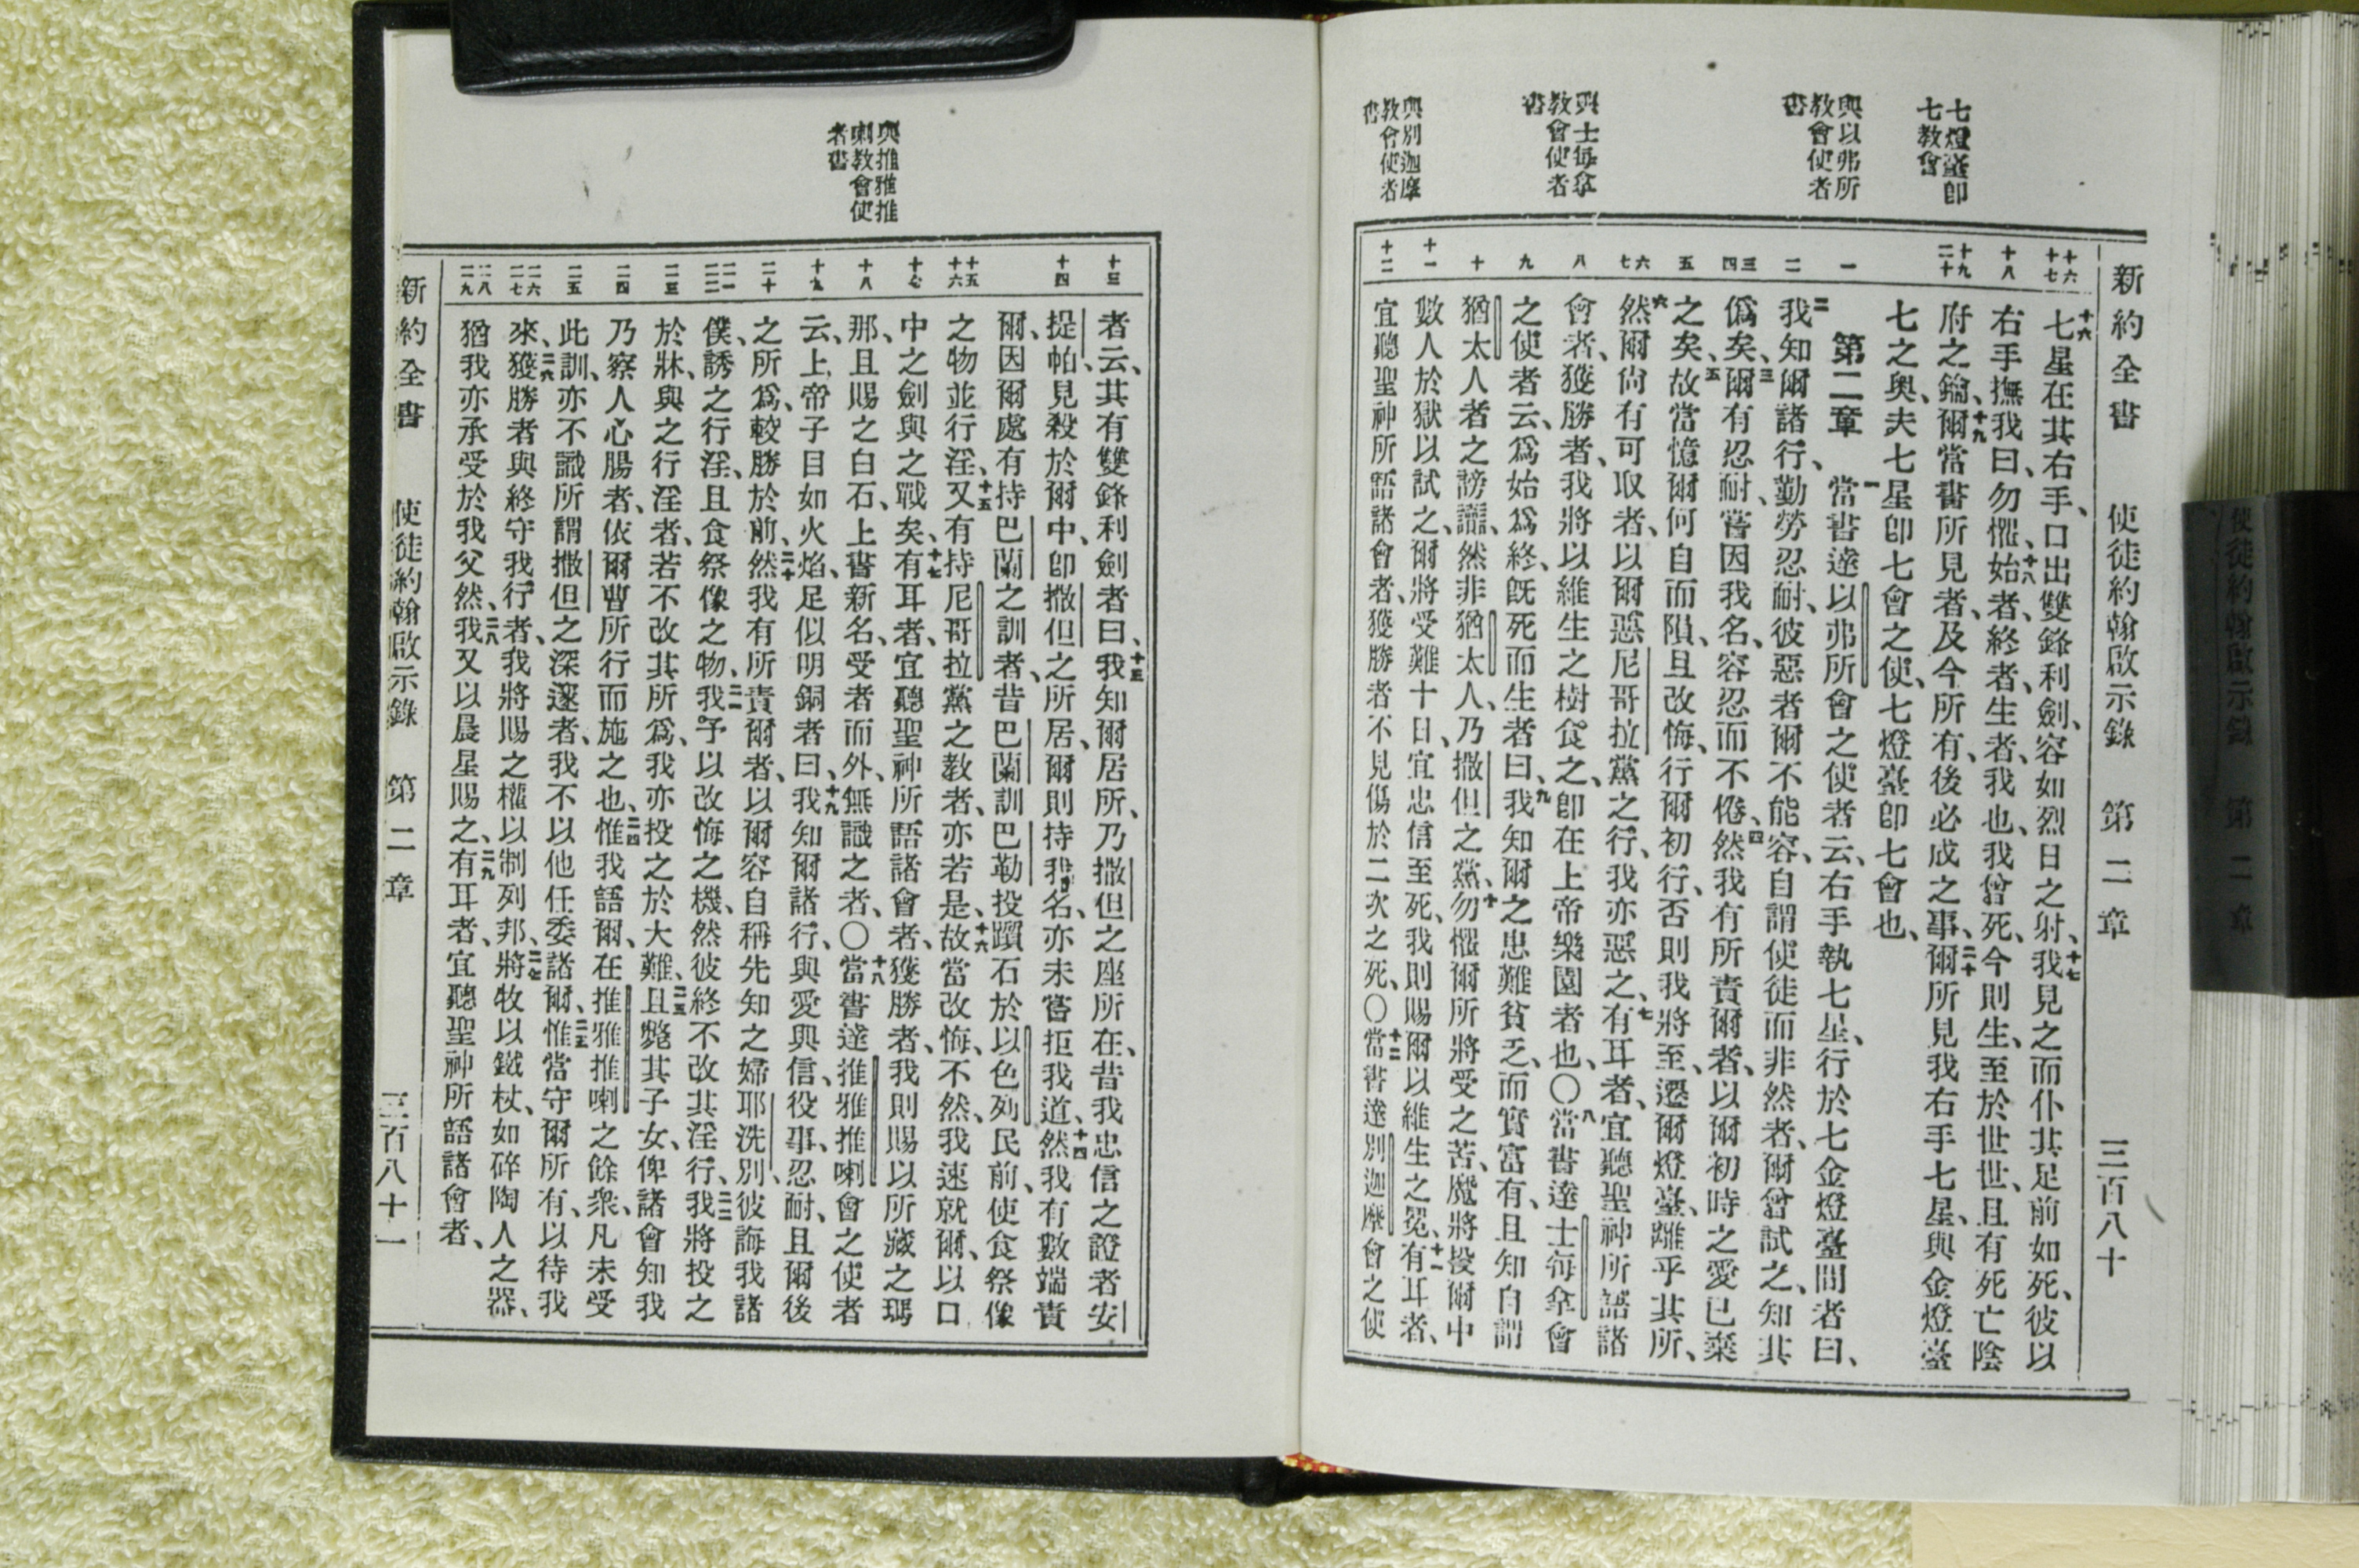 新約全書　使徒約翰啟示錄　第二章　三百八十
七燈臺卽
七教會
與以弗所
教會使者
書
與士每拿
教會使者
書
與別迦摩
教會使者
書
十六
十七
十八
十九
二十
一
二
三
四
五
六
七
八
九
十
十一
十二
十六七星在其右手、口出雙鋒利劍、容如烈日之射、十七我見之而仆其足前如死、彼以
右手撫我曰、勿懼、十八始者、終者、生者、我也、我曾死、今則生、至於世世、且有死亡陰
府之鑰、十九爾當書所見者、及今所有、後必成之事、二十爾所見我右手七星、與金燈臺
七之奧、夫七星卽七會之使、七燈臺卽七會也、
第二章　一當書達以弗所會之使者云、右手執七星、行於七金燈臺間者曰、
二我知爾諸行、勤勞忍耐、彼惡者爾不能容、自謂使徒而非然者、爾曾試之、知其
僞矣、三爾有忍耐、嘗因我名、容忍而不倦、四然我有所責爾者、以爾初時之愛已棄
之矣、五故當憶爾何自而隕、且改悔、行爾初行、否則我將至、遷爾燈臺、離乎其所、
六然爾尚有可取者、以爾惡尼哥拉黨之行、我亦惡之、七有耳者、宜聽聖神所語諸
會者、獲勝者、我將以維生之樹食之、卽在上帝樂園者也、〇八當書達士每拿會
之使者云、爲始爲終、旣死而生者曰、九我知爾之患難貧乏、而實富有、且知自謂
猶太人者之謗讟、然非猶太人、乃撒但之黨、十勿懼爾所將受之苦、魔將投爾中
數人於獄以試之、爾將受難十日、宜忠信至死、我則賜爾以維生之冕、十一有耳者、
宜聽聖神所語諸會者、獲勝者不見傷於二次之死、〇十二當書達別迦摩會之使
與推雅推
喇教會使
者書
十三
十四
十五
十六
十七
十八
十九
二十
二一
二二
二三
二四
二五
二六
二七
二八
二九
者云、其有雙鋒利劍者曰、十三我知爾居所、乃撒但之座所在、昔我忠信之證者安
提帕、見殺於爾中、卽撒但之所居、爾則持我名、亦未嘗拒我道、十四然我有數端責
爾、因爾處有持巴蘭之訓者、昔巴蘭訓巴勒投躓石於以色列民前、使食祭像
之物並行淫、十五又有持尼哥拉黨之教者、亦若是、十六故當改悔、不然、我速就爾、以口
中之劍與之戰矣、十七有耳者、宜聽聖神所語諸會者、獲勝者、我則賜以所藏之瑪
那、且賜之白石、上書新名、受者而外、無識之者、〇十八當書達推雅推喇會之使者
云、上帝子目如火焰、足似明銅者曰、十九我知爾諸行、與愛與信、役事、忍耐、且爾後
之所爲、較勝於前、二十然我有所責爾者、以爾容自稱先知之婦耶洗別、彼誨我諸
僕、誘之行淫、且食祭像之物、二一我予以改悔之機、然彼終不改其淫行、二二我將投之
於牀、與之行淫者、若不改其所爲、我亦投之於大難、二三且斃其子女、俾諸會知我
乃察人心腸者、依爾曹所行而施之也、二四惟我語爾、在推雅推喇之餘衆、凡未受
此訓、亦不識所謂撒但之深邃者、我不以他任委諸爾、二五惟當守爾所有、以待我
來、二六獲勝者與終守我行者、我將賜之權以制列邦、二七將牧以鐵杖、如碎陶人之器、
猶我亦承受於我父然、二八我又以晨星賜之、二九有耳者、宜聽聖神所語諸會者、
新約全書　使徒約翰啟示錄　第二章　三百八十一